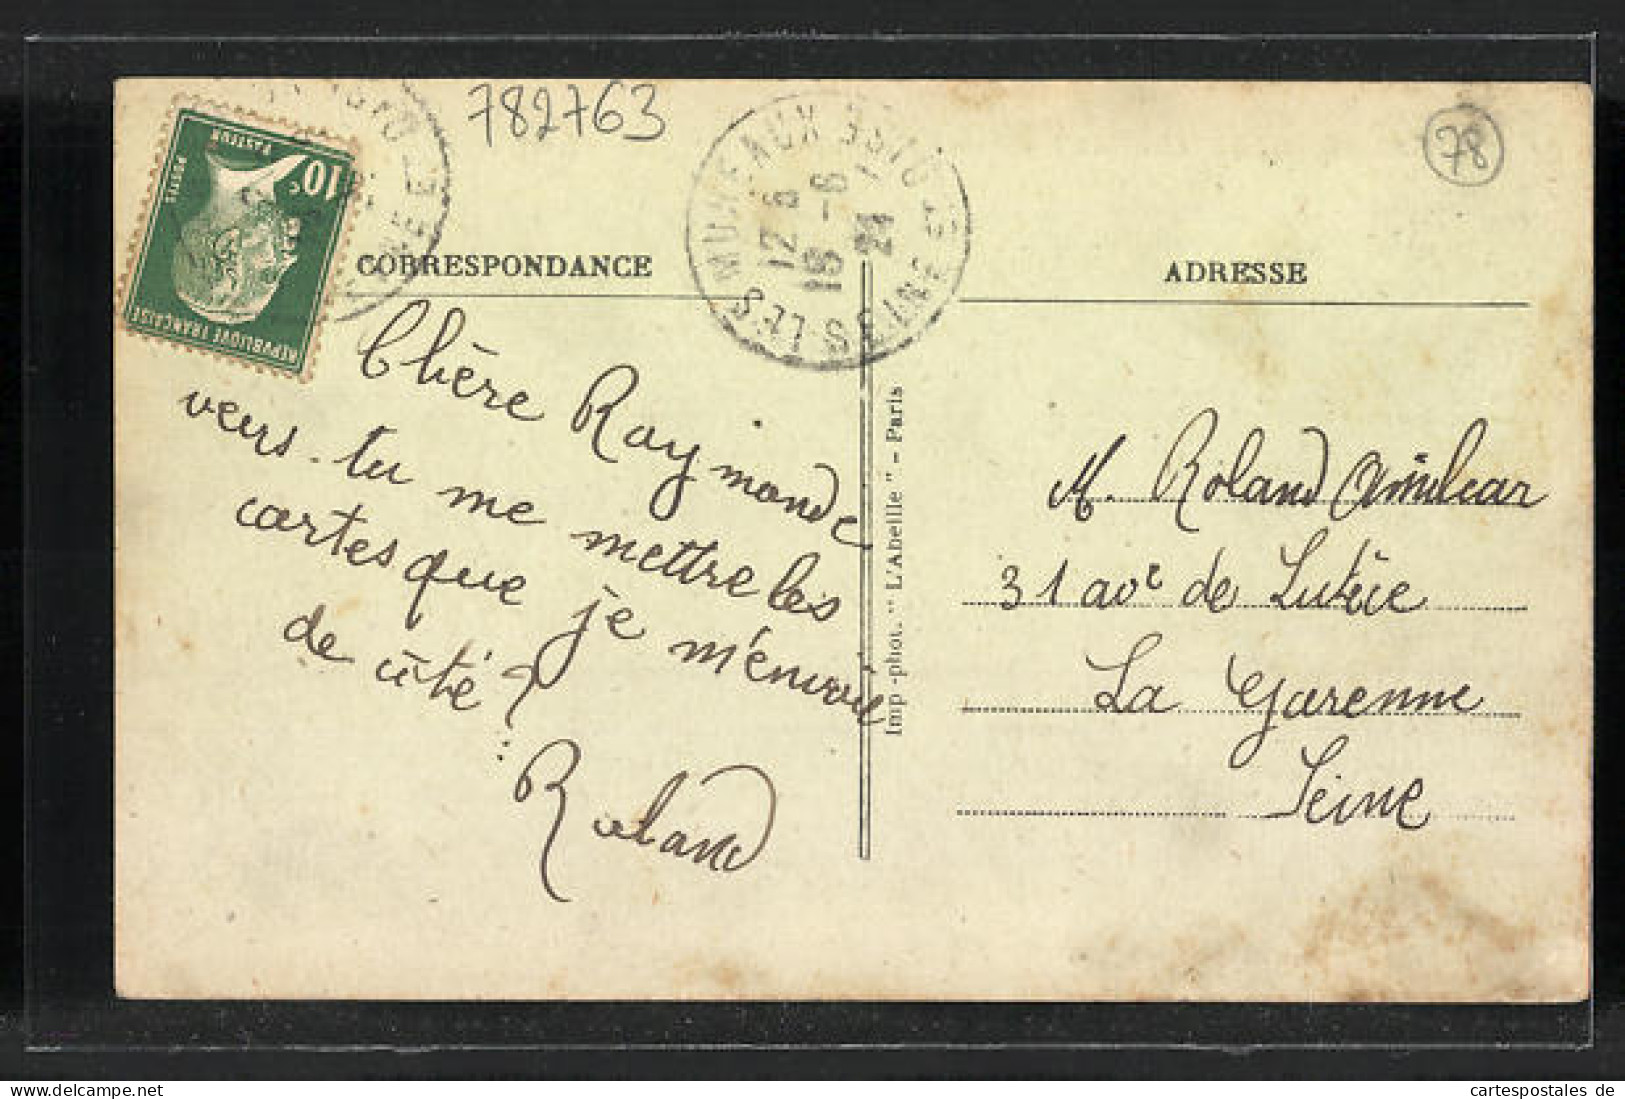 782763
78
10c
PASTEUR
POSTES
REPUBLIQUE FRANÇAISE
LES MUREAUX
SEINE-ET-OISE
18 - 6
24
CORRESPONDANCE
ADRESSE
Chère Raymonde
veus-tu me mettre les
cartes que je m'envoie
de côté ?
Roland
Imp-phot. "L'Abeille" - Paris
M. Roland
31 ave de Lutèce
La Garenne
Seine
cartespostales de